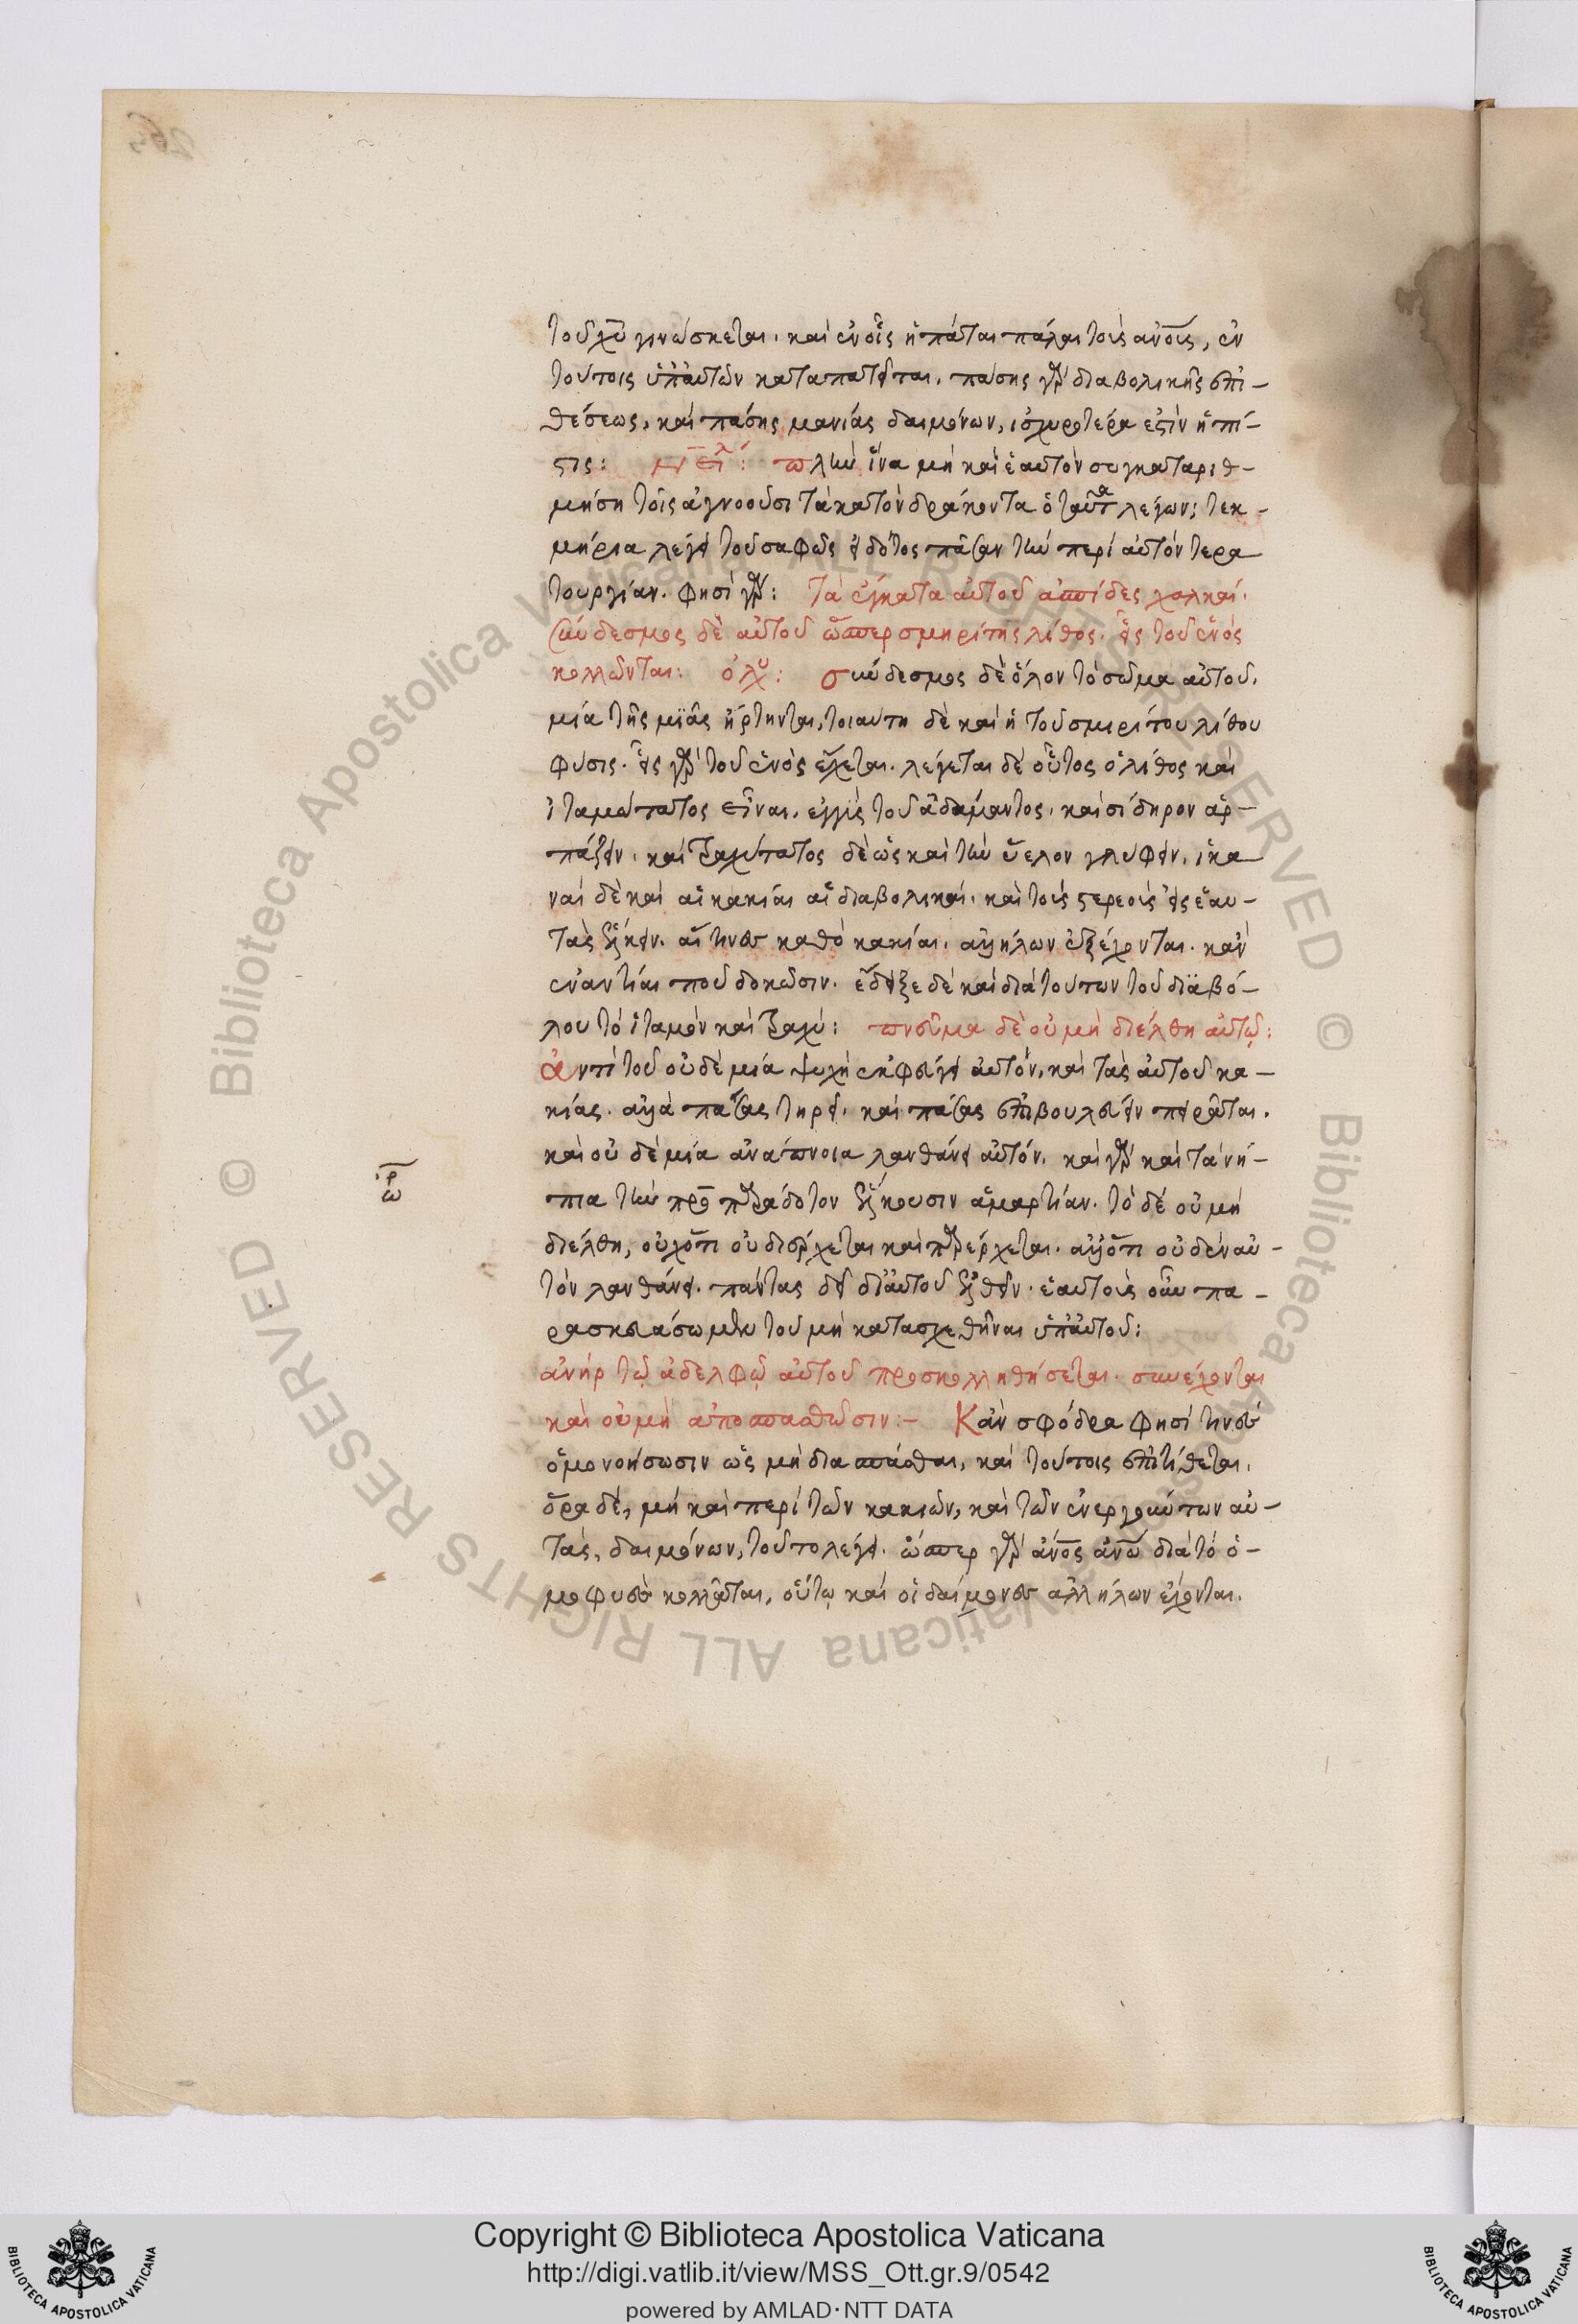 τοῦ χῦ γινώσκεται. καὶ ἐν οἷς ἡπάται πάλαι τοὺς ἀνοὺς, ἐν
τούτοις ὑπ' αὐτῶν καταπατεῖται. πάσης γὰρ διαβολικῆς ἐπι-
θέσεως, καὶ πάσης μανίας δαιμόνων, ἰσχυροτέρα ἐστὶν ἡ πί-
στις: πλὴν ἵνα μὴ καὶ ἑαυτὸν συγκαταριθ-
μήση τοῖς ἀγνοοῦσι τὰ κατὰ τὸν δράκοντα ὁ ταῦτα λέγων; τεκ-
μήρια λέγει τοῦ σαφῶς εἰδότος πᾶσαν τὴν περὶ αὐτὸν τερα
τουργίαν. φησὶ γάρ: Τὰ ἔγκατα αὐτοῦ ἀσπίδες χαλκαῖ.
σύνδεσμος δὲ αὐτοῦ ὥσπερ σμηρίτης λίθος. εἷς τοῦ ἑνὸς
κολλῶνται: ὀλυ: σύνδεσμος δὲ ὅλον τὸ σῶμα αὐτοῦ.
μία τῆς μϊᾶς ἤρτηνται, τοιαύτη δὲ καὶ ἡ τοῦ σμιρίτου λίθου
φύσις. εἷς γὰρ τοῦ ἑνὸς ἔχεται. λέγεται δὲ οὗτος ὁ λίθος καὶ
ἰταμώτατος εἶναι. ἐγγὺς τοῦ ἀδάμαντος. καὶ σίδηρον ἁρ-
πάζειν. καὶ τραχύτατος δὲ ὡς καὶ τὴν ὕελον γλύφειν. ἱκα
ναὶ δὲ καὶ αἱ κακίαι αἱ διαβολικαί. καὶ τοὺς στερεοὺς εἰς ἑαυ-
τὰς ἕλκειν. αἵτινες καθὸ κακίαι. ἀλλήλων ἐξέχονται. κἂν
ἐναντίαι που δοκῶσιν. ἔδειξε δὲ καὶ διὰ τούτων τοῦ διαβό-
λου τὸ ἰταμὸν καὶ τραχύ: πνεῦμα δὲ οὐ μὴ διέλθη αὐτῷ:
ἀντὶ τοῦ οὐδὲ μία ψυχὴ ἐκφεύγει αὐτόν, καὶ τὰς αὐτοῦ κα-
κίας. ἀλλὰ πάσας τηρεῖ. καὶ πάσας ἐπιβουλεύειν πειρᾶται.
καὶ οὐδὲ μία ἀνάπνοια λανθάνει αὐτόν. καὶ γὰρ καὶ τὰ νή-
πια τὴν προπαράδοτον ἕλκουσιν ἁμαρτίαν. τὸ δὲ οὐ μὴ
διέλθη, οὐχ ὅτι οὐ διέρχεται καὶ παρέρχεται. ἀλλ' ὅτι οὐδὲν αὐ-
τὸν λανθάνει. πάντας δεῖ δι' αὐτοῦ ἐλθεῖν. ἑαυτοὺς οὖν πα-
ρασκευάσωμεν τοῦ μὴ κατασχεθῆναι ὑπ' αὐτοῦ:
ἀνὴρ τῷ ἀδελφῷ αὐτοῦ προσκολληθήσεται. συνέχονται
καὶ οὐ μὴ ἀποσπασθῶσιν:- Κἂν σφόδρα φησί τινες
ὁμονοήσωσιν ὡς μὴ διασπᾶσθαι, καὶ τούτοις ἐπιτίθεται.
ὅρα δὲ, μὴ καὶ περὶ τῶν κακιῶν, καὶ τῶν ἐνεργούντων αὐ-
τὰς, δαιμόνων, τοῦτο λέγει. ὥσπερ γὰρ ἀνὸς ἀνω διὰ τὸ ὁ-
μοφυὲς κολλᾶται, οὕτω καὶ οἱ δαίμονες ἀλλήλων ἔχονται.
Copyright © Biblioteca Apostolica Vaticana
http://digi.vatlib.it/view/MSS_Ott.gr.9/0542
powered by AMLAD·NTT DATA